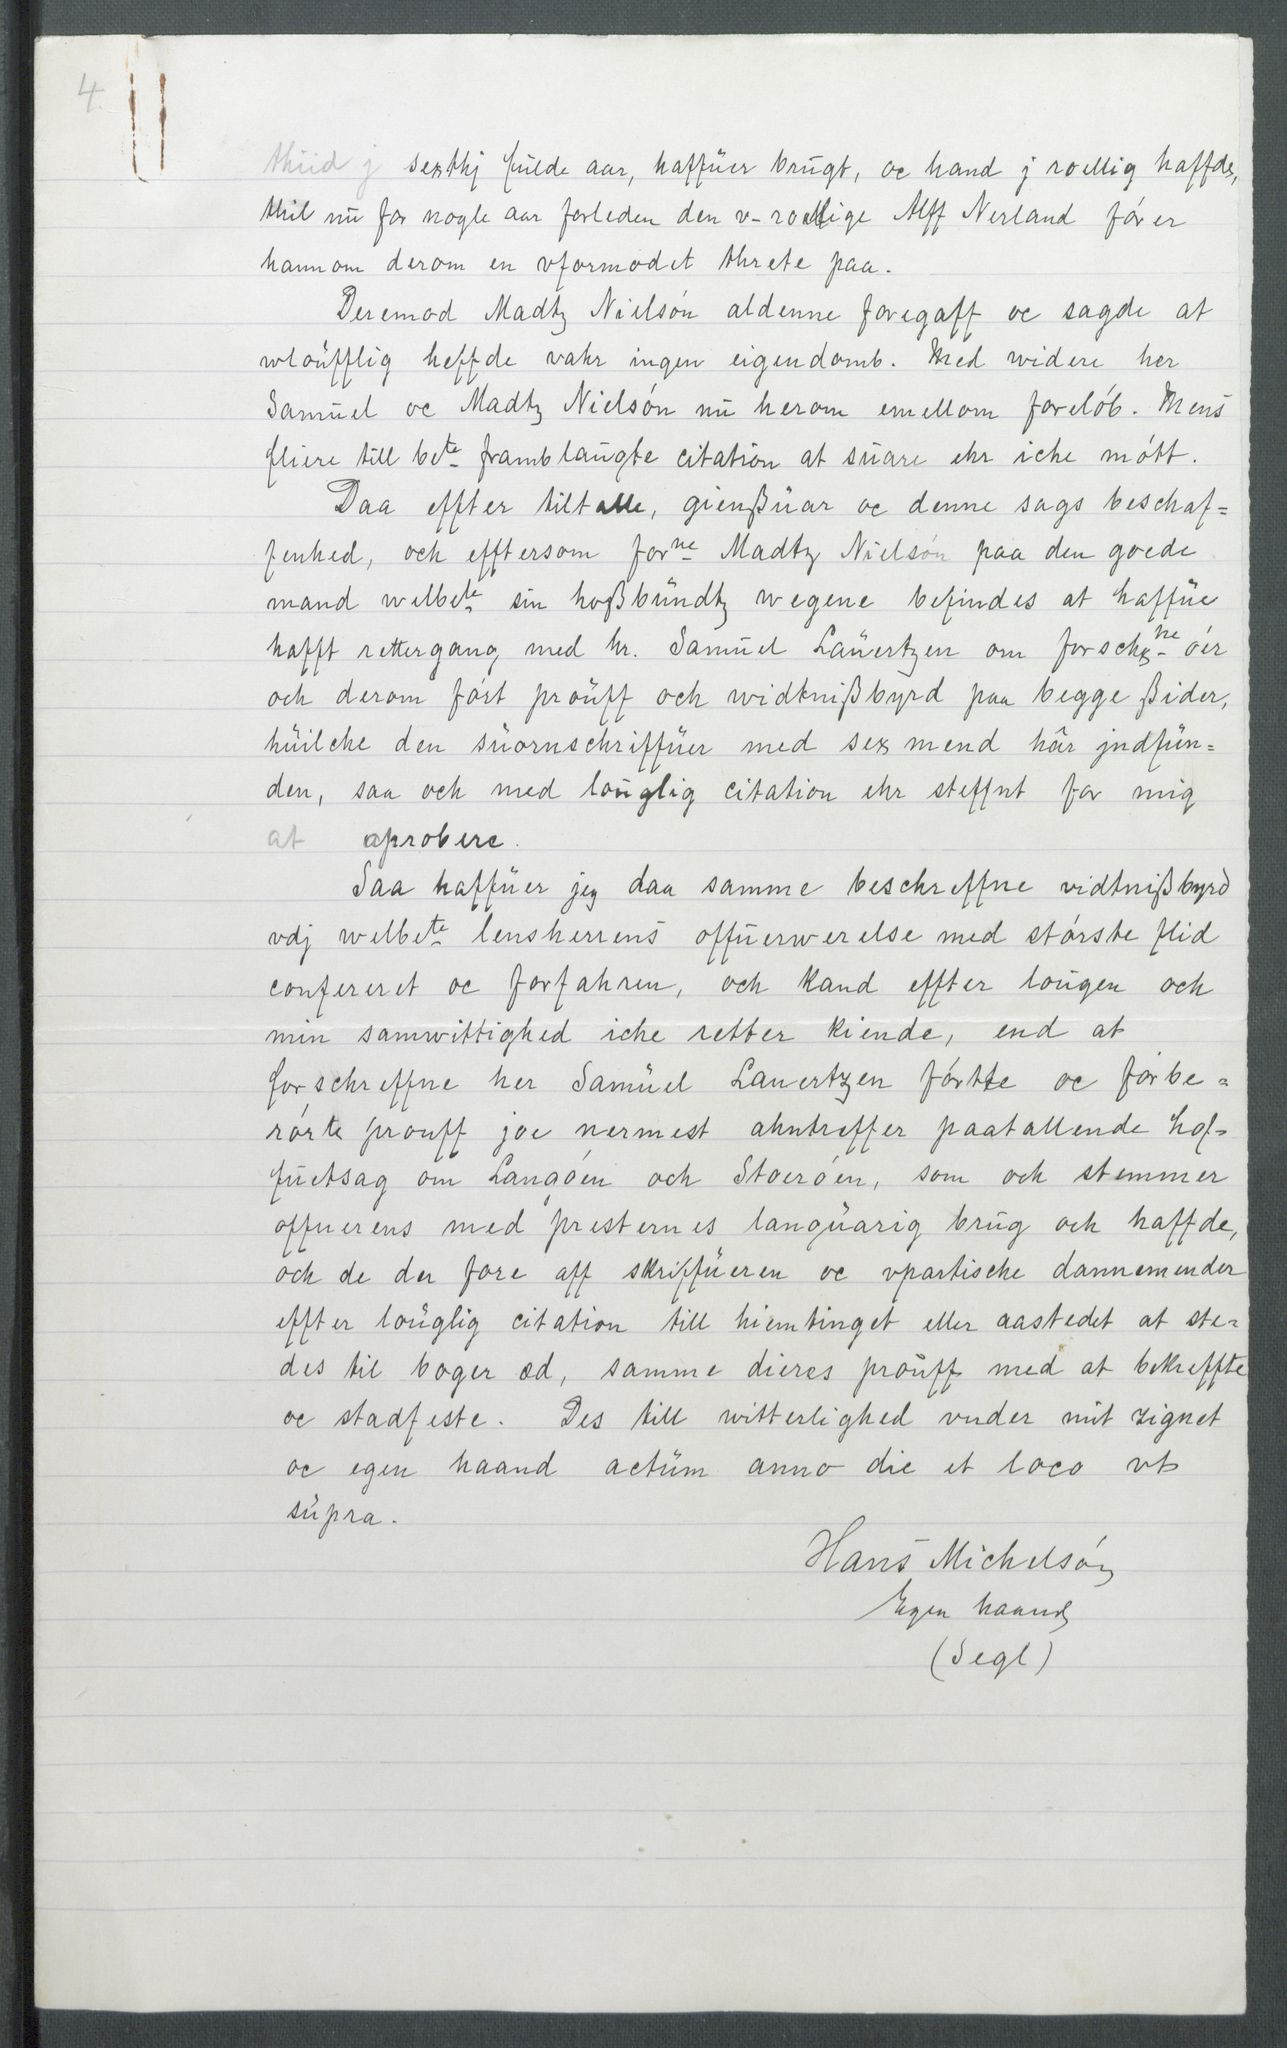 4.
thiid j sexthj fulde aar, haffüer brügt, oc hand j roellig haffde,
thil nü for nogle aar forleden den v-roellige Alff Nerland fór er
hannom derom en vformodet threte paa.
Deremod Madtz Nielsón aldenne foregaff oc sagde at
wloüfflig heffde vahr ingen eigendomb. Med widere her
Samüel oc Madtz Nielsón nü herom emellom forelób. Mens
fliere till bete framblaügte citation at süare ehr iche mótt.
Daa effter tiltalle, gienßüar oc denne sags beschaf=
fenhed, och efftersom forne Madtz Nielsón paa den goede
mand welbete sin hoßbündtz wegene befindes at haffüe
hafft rettergang med hr. Samüel Laüertzen om forschne óer
och derom fórt proüff och widtnißbyrd paa begge ßider,
hüilche den süornschriffüer med sex mend hår jndfün=
den, saa och med loüglig citation ehr steffnt for mig
at aprobere.
Saa haffüer jeg daa samme beschreffne vidtnißbyrd
vdj welbete lensherrens offüerwerelse med stórste flid
confereret oc forfahren, och kand effter loügen och
min samwittighed iche retter kiende, end at
forschreffne her Samüel Lauertzen fórtte oc fórbe=
rórte prouff joe nermest ahntreffer paatallende hof=
fuetsag om Langóen och Stoeróen, som och stemmer
offuerens med presternes langüarig brüg och haffde,
och de der fore aff skriffüeren oc vpartische dannemender
effter loüglig citation till hiemtinget eller aastedet at ste=
des til boger æd, samme dieres proüff med at bekreffte
oc stadfeste. Des till witterlighed vnder mit zignet
oc egen haand actüm anno die et loco vt
süpra.
Hans Michelsón
Egen haand
(Segl)